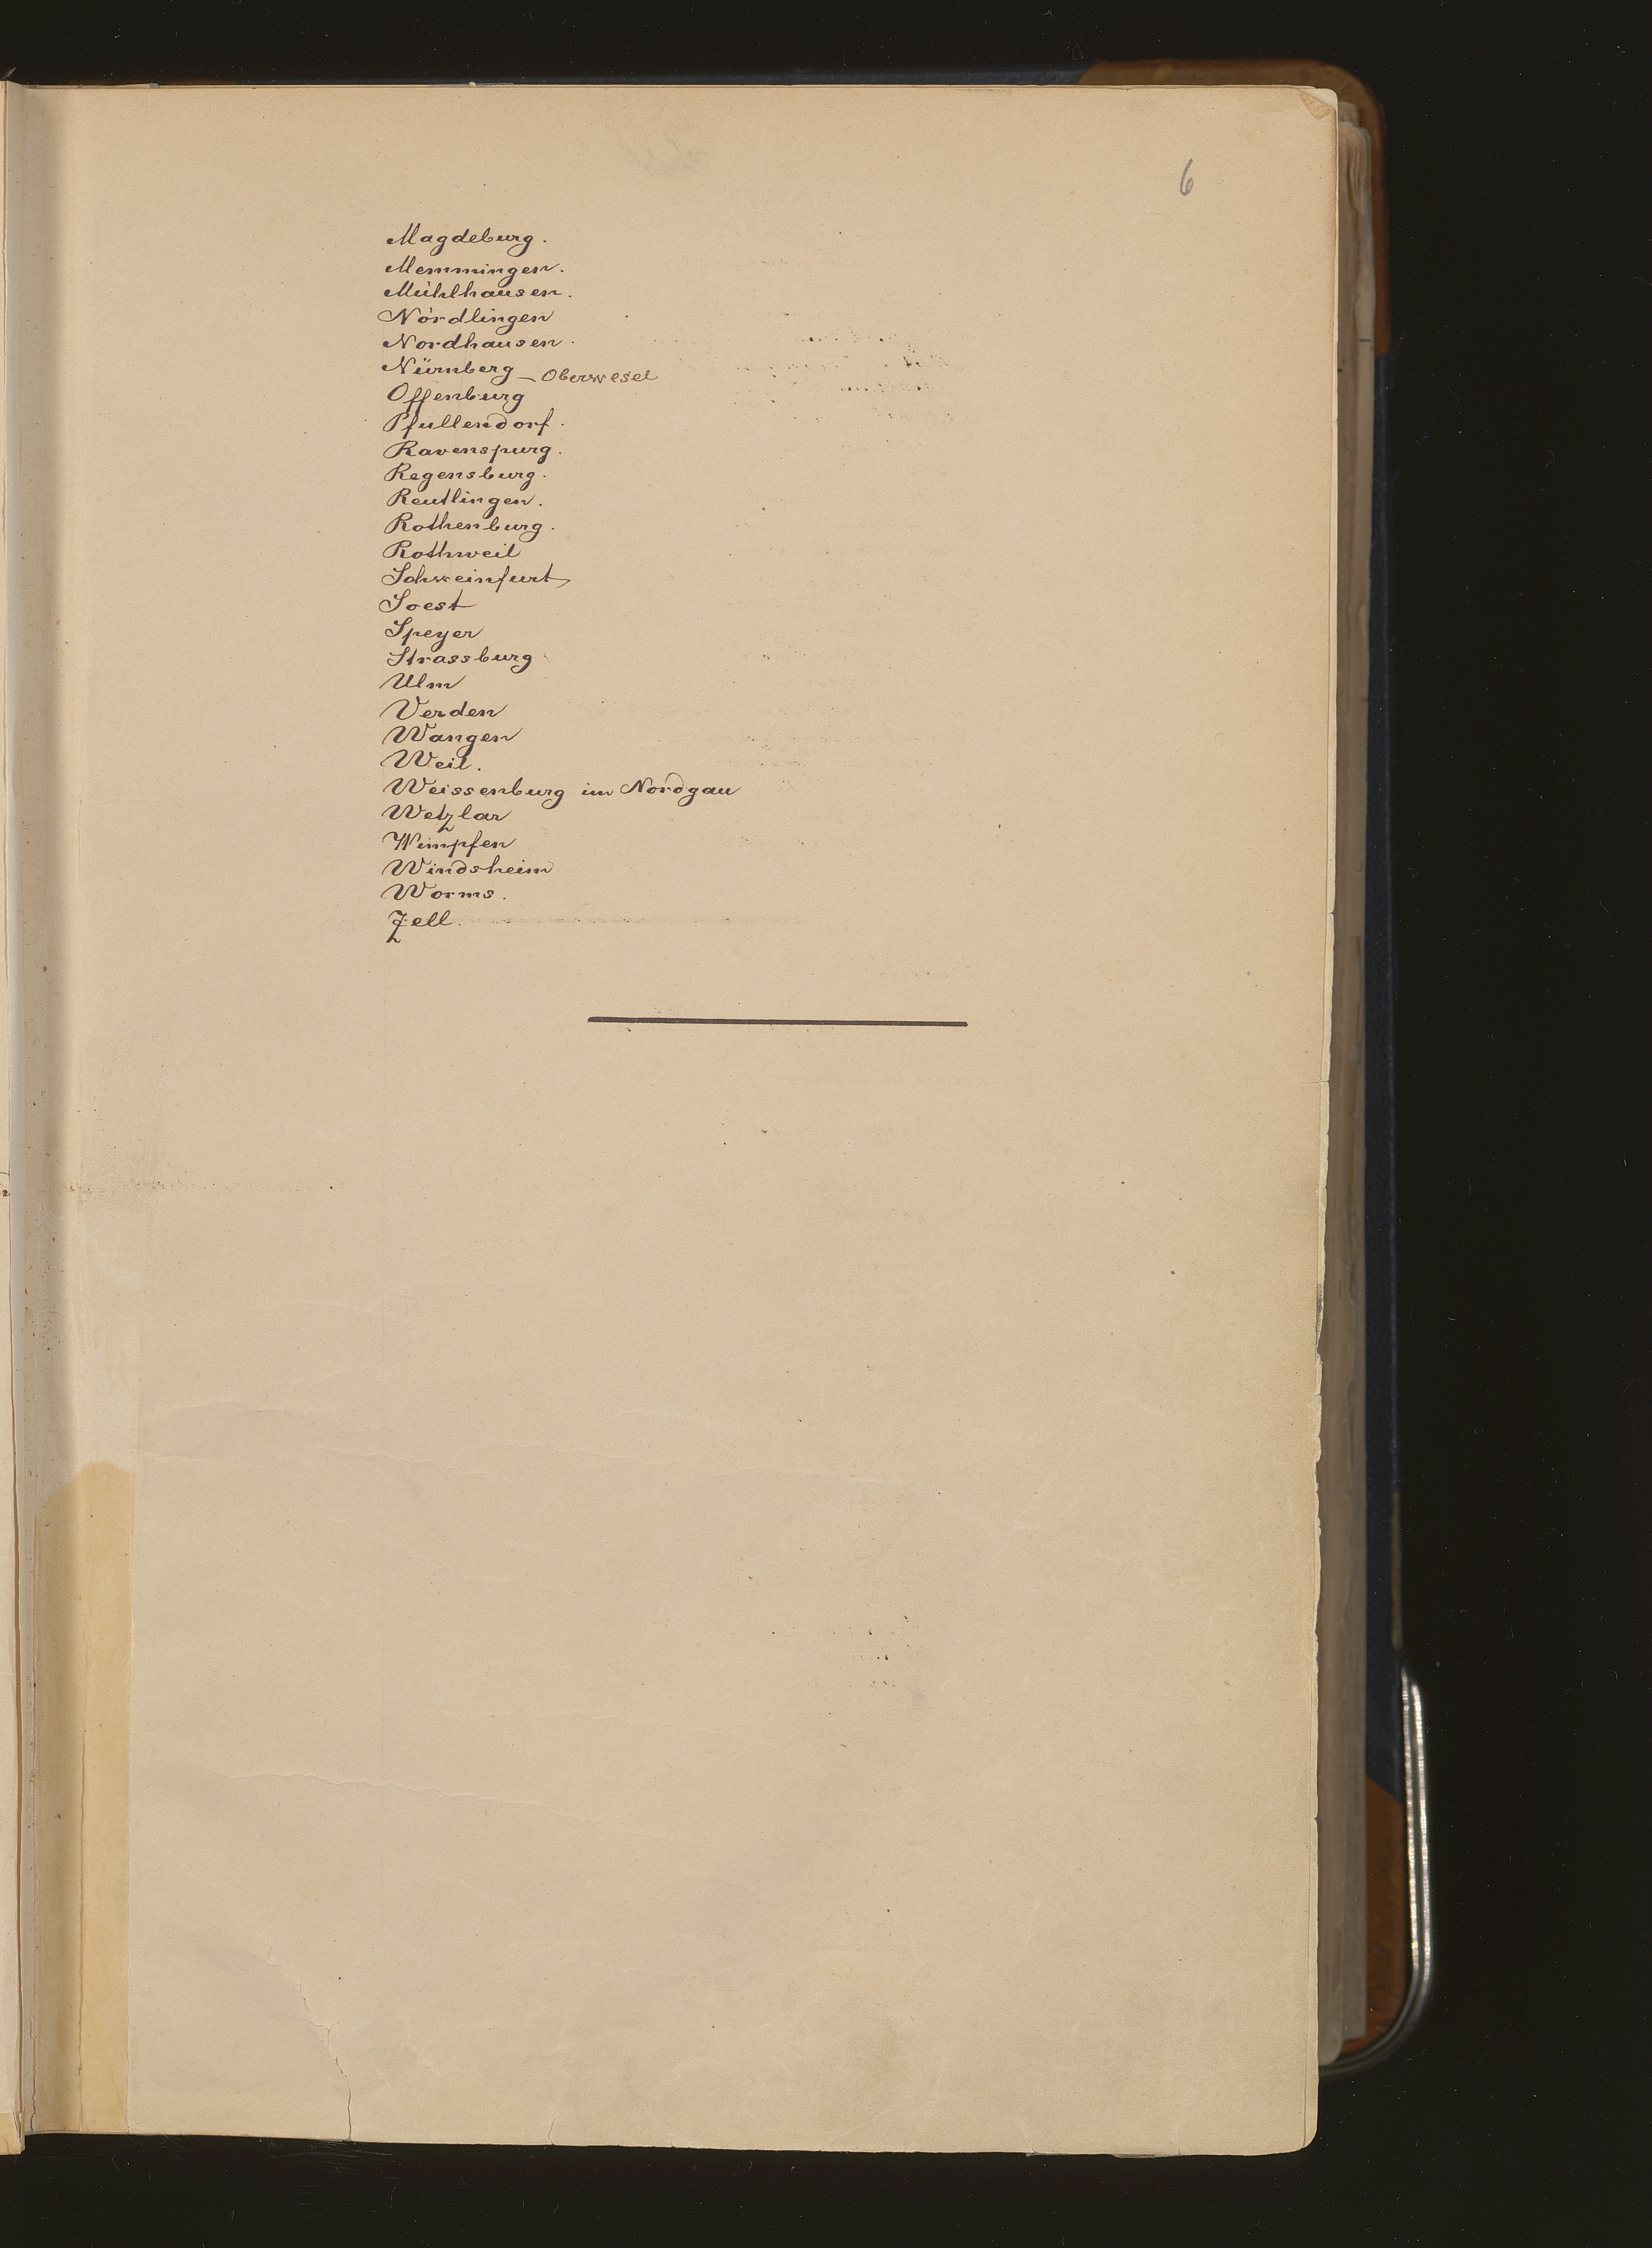 6
Magdeburg.
Memmingen.
Mühlhausen.
Nördlingen
Nordhausen.
Nürnberg – Oberwesel
Offenburg
Pfullendorf.
Ravenspurg.
Regensburg.
Reutlingen.
Rothenburg.
Rothweil
Schweinfurt
Soest
Speyer
Strassburg
Ulm
Verden
Wangen
Weil.
Weissenburg im Nordgau
Wetzlar
Wimpfen
Windsheim
Worms.
Zell.